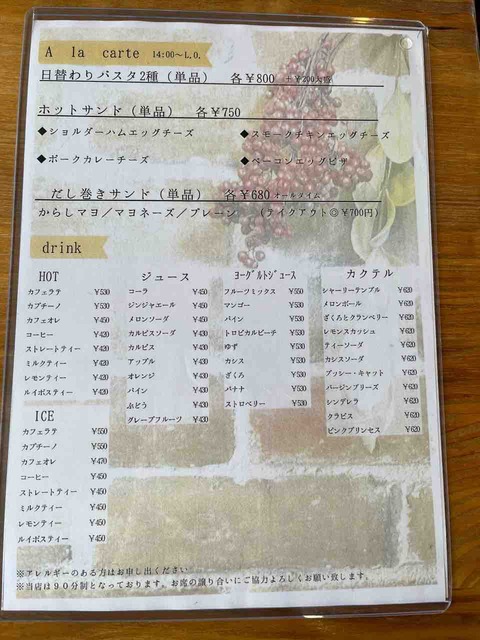 A la carte 14:00～L.O.
日替わりパスタ2種（単品） 各￥800 ＋￥200大盛
ホットサンド（単品） 各￥750
◆ショルダーハムエッグチーズ ◆スモークチキンエッグチーズ
◆ポークカレーチーズ ◆ベーコンエッグピザ
だし巻きサンド（単品） 各￥680 オールタイム
からしマヨ／マヨネーズ／プレーン （テイクアウト◎￥700円）
drink
HOT
カフェラテ ￥530
カプチーノ ￥530
カフェオレ ￥450
コーヒー ￥420
ストレートティー ￥420
ミルクティー ￥420
レモンティー ￥420
ルイボスティー ￥420
ICE
カフェラテ ￥550
カプチーノ ￥550
カフェオレ ￥470
コーヒー ￥450
ストレートティー ￥450
ミルクティー ￥450
レモンティー ￥450
ルイボスティー ￥450
ジュース
コーラ ￥450
ジンジャエール ￥450
メロンソーダ ￥450
カルピスソーダ ￥430
カルピス ￥430
アップル ￥430
オレンジ ￥430
パイン ￥430
ぶどう ￥430
グレープフルーツ ￥430
ﾖｰｸﾞﾙﾄｼﾞｭｰｽ
フルーツミックス ￥550
マンゴー ￥530
パイン ￥530
トロピカルピーチ ￥530
ゆず ￥530
カシス ￥530
ざくろ ￥530
バナナ ￥530
ストロベリー ￥530
カクテル
シャーリーテンプル ￥620
メロンボール ￥620
ざくろとクランベリー ￥620
レモンスカッシュ ￥620
ティーソーダ ￥620
カシスソーダ ￥620
プッシー・キャット ￥620
バージンブリーズ ￥620
シンデレラ ￥620
クラビス ￥620
ピンクプリンセス ￥620
※アレルギーのある方はお申し出ください
※当店は９０分制となっております。お席の譲り合いにご協力よろしくお願い致します。